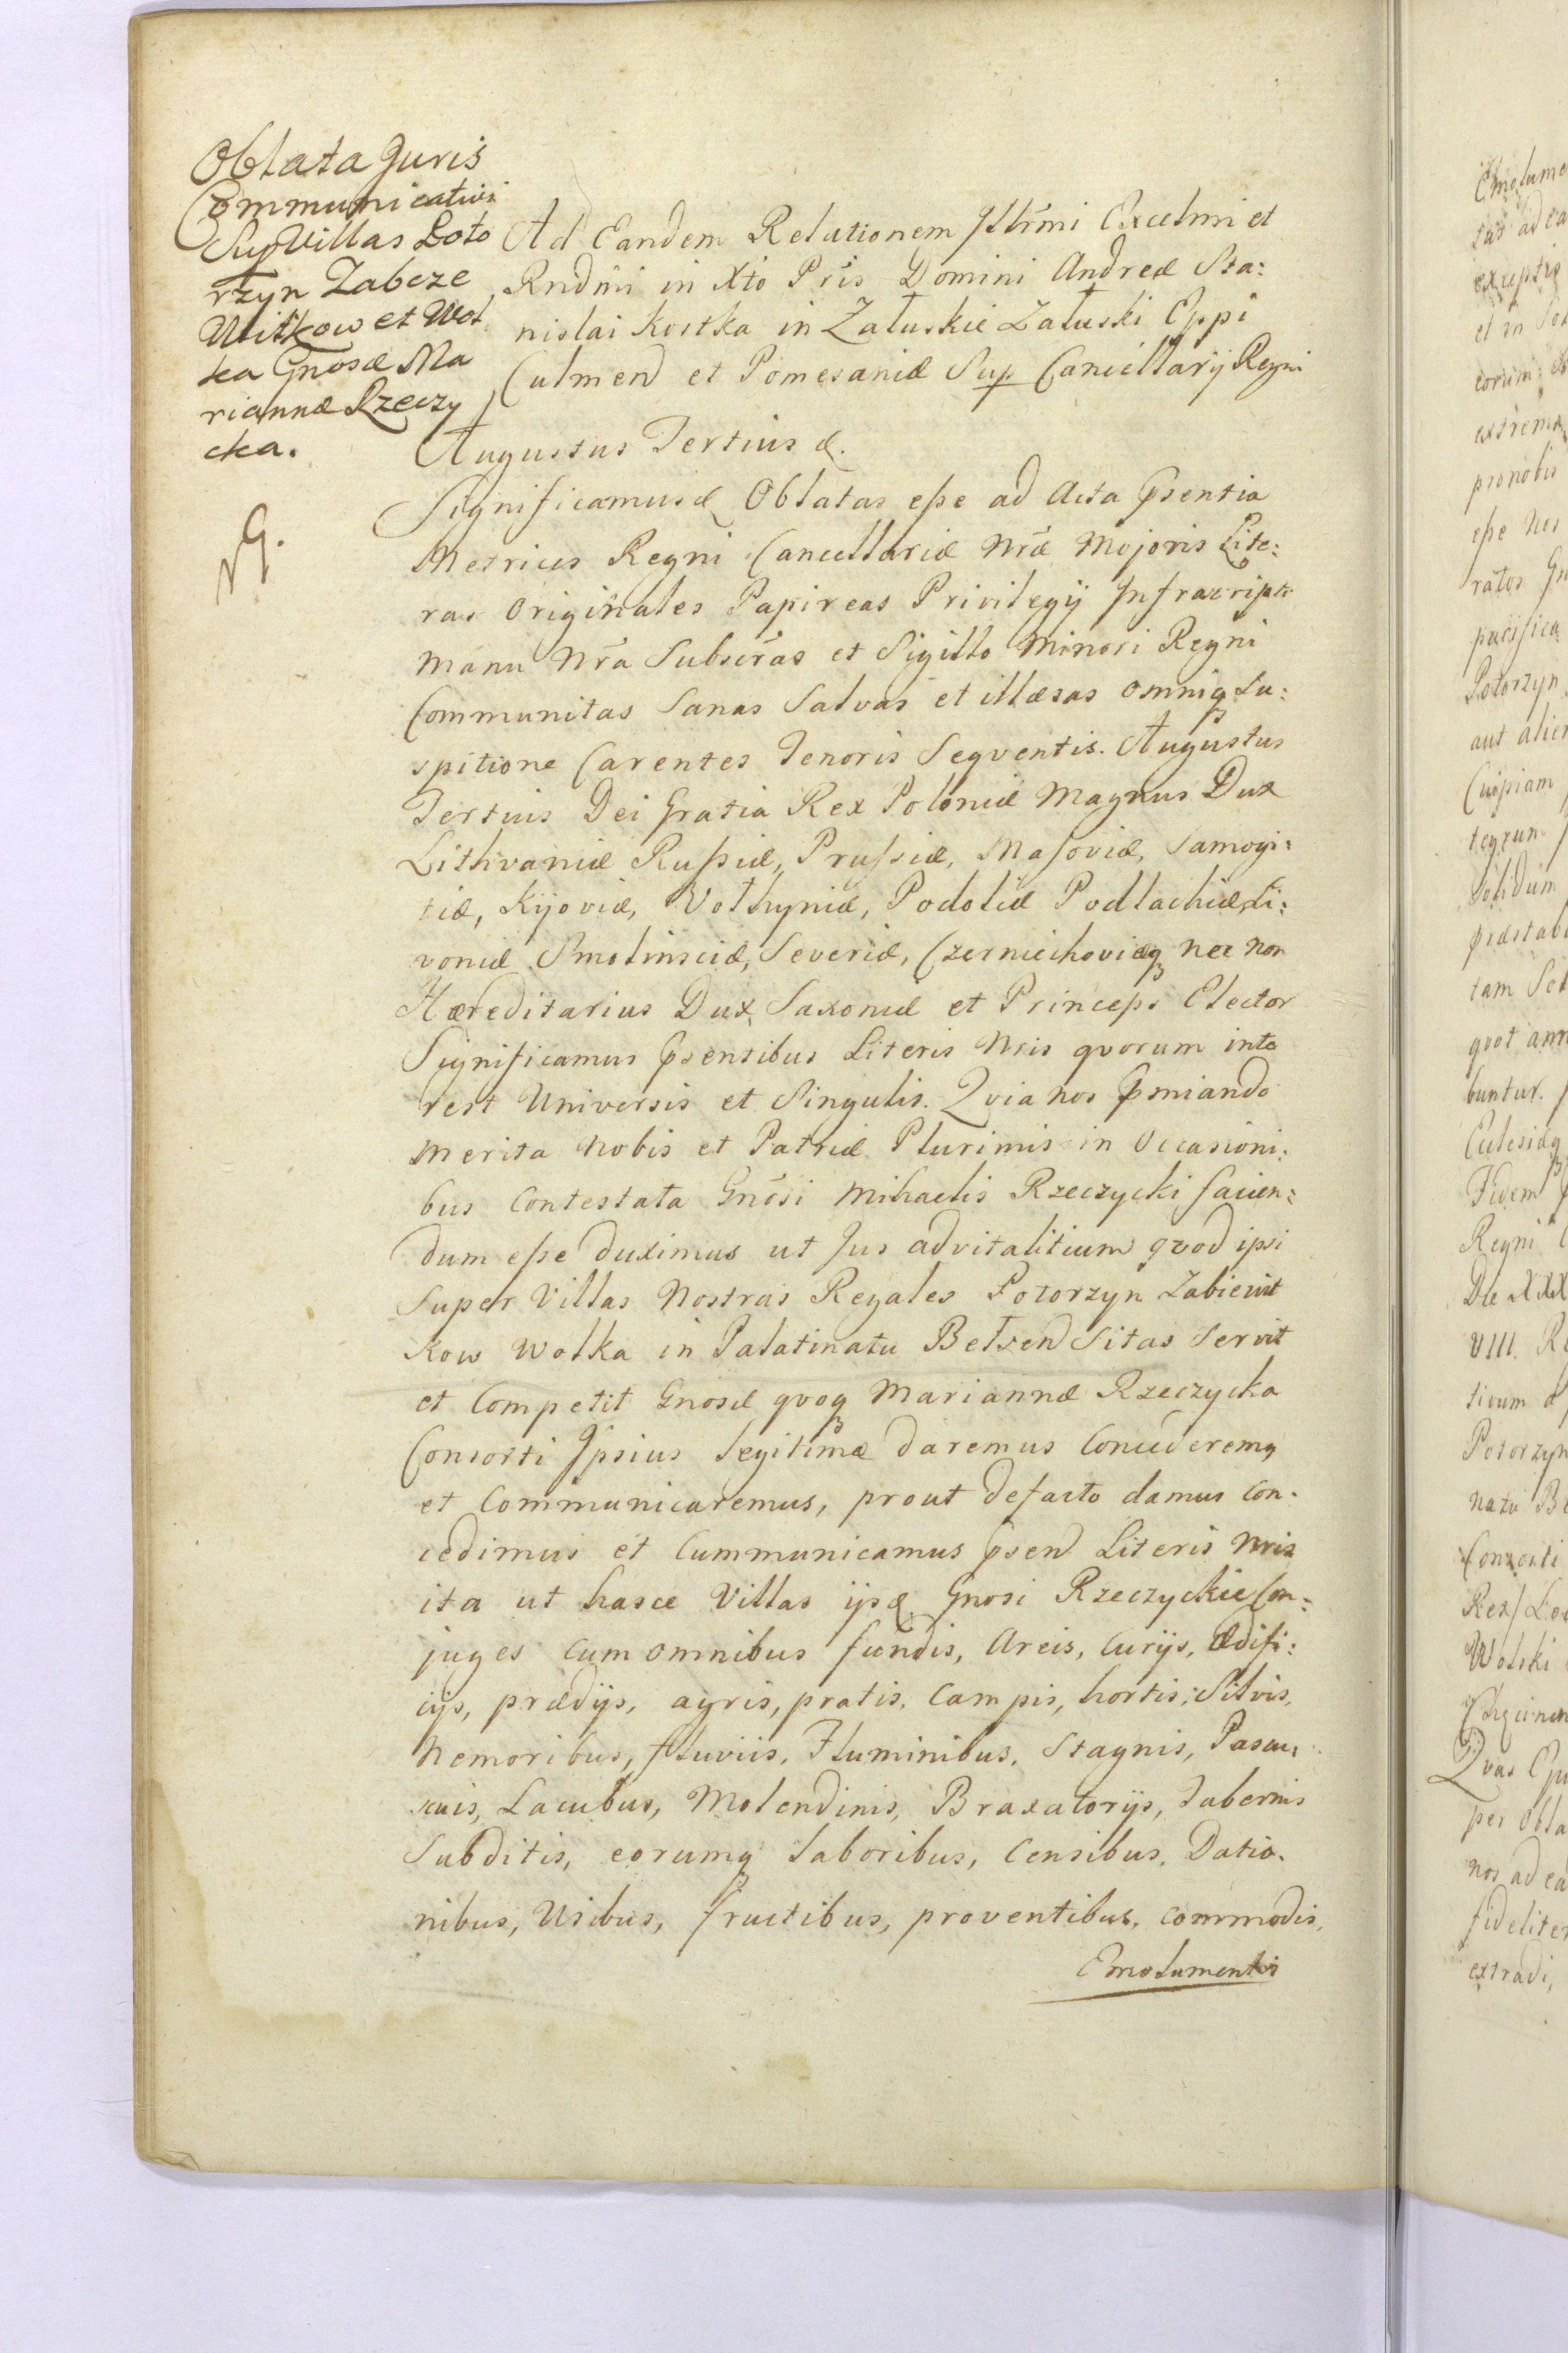 Oblata Juris
Communicativi
Sup Villas Loto
rzyn Zabcze
Witkow et Wol
ka Gnosæ Ma
riannæ Rzeczy
cka.
Ad Eandem Relationem Illr̃mi Excelmi et
Rndmi in Xto Pr̃is Domini Andreæ Sta:
nislai Kostka in Załuskie Załuski Eppi
Culmen et Pomesaniæ Sup Cancellarij Regni
Augustus Tertius &.
Significamus & Oblatas eſse ad Acta Pſentia
Metrices Regni Cancellariæ Nr̃æ Majoris Lite:
ras Originales Papireas Privilegij Infrascripti
manu Nr̃a Subscr̃as et Sigillo Minori Regni
Communitas Sanas Salvas et illæsas omniq Su:
spitione Carentes Tenoris Seqventis. Augustus
Tertius Dei Gratia Rex Poloniæ Magnus Dux
Lithvaniæ Ruſsiæ, Pruſsiæ, Maſoviæ, Samogi:
tiæ, Kijoviæ, Volhyniæ, Podoliæ Podlachiæ, Li:
voniæ Smolinsciæ, Severiæ, Czerniechoviæq nec non
Hæreditarius Dux Saxoniæ et Princeps Elector
Significamus Pſentibus Literis Nris qvorum inte
rest Universis et Singulis. Qvia nos Pmiando
Merita Nobis et Patriæ Plurimis in Occasioni:
bus Contestata Gnõsi Mihaelis Rzeczycki facien:
dum eſse duximus ut Jus advitalitium qvod ipsi
Super Villas Nostras Regales Potorzyn Zabie wit
kow Wolka in Palatinatu Belzen Sitas Servit
et Competit Gnosæ qvoq Mariannæ Rzeczycka
Consorti Ipsius legitimæ daremus Concederemq
et Communicaremus, prout defacto damus Con:
cedimus et Cummunicamus Pſen Literis Nris
ita ut hasce Villas ijsd Gnosi Rzeczyckie Con:
juges cum omnibus fundis, Areis, Curijs, Ædifi:
cijs, prædijs, agris, pratis, Campis, hortis, Silvis,
Nemoribus, fluviis, Fluminibus, Stagnis, Pascu,
scuis, Lacubus, Molendinis, Braxatorijs, Tabernis
Subditis, eorumq laboribus, Censibus, Datio:
nibus, Usibus, fructibus, proventibus, commodis,
Emolumentis